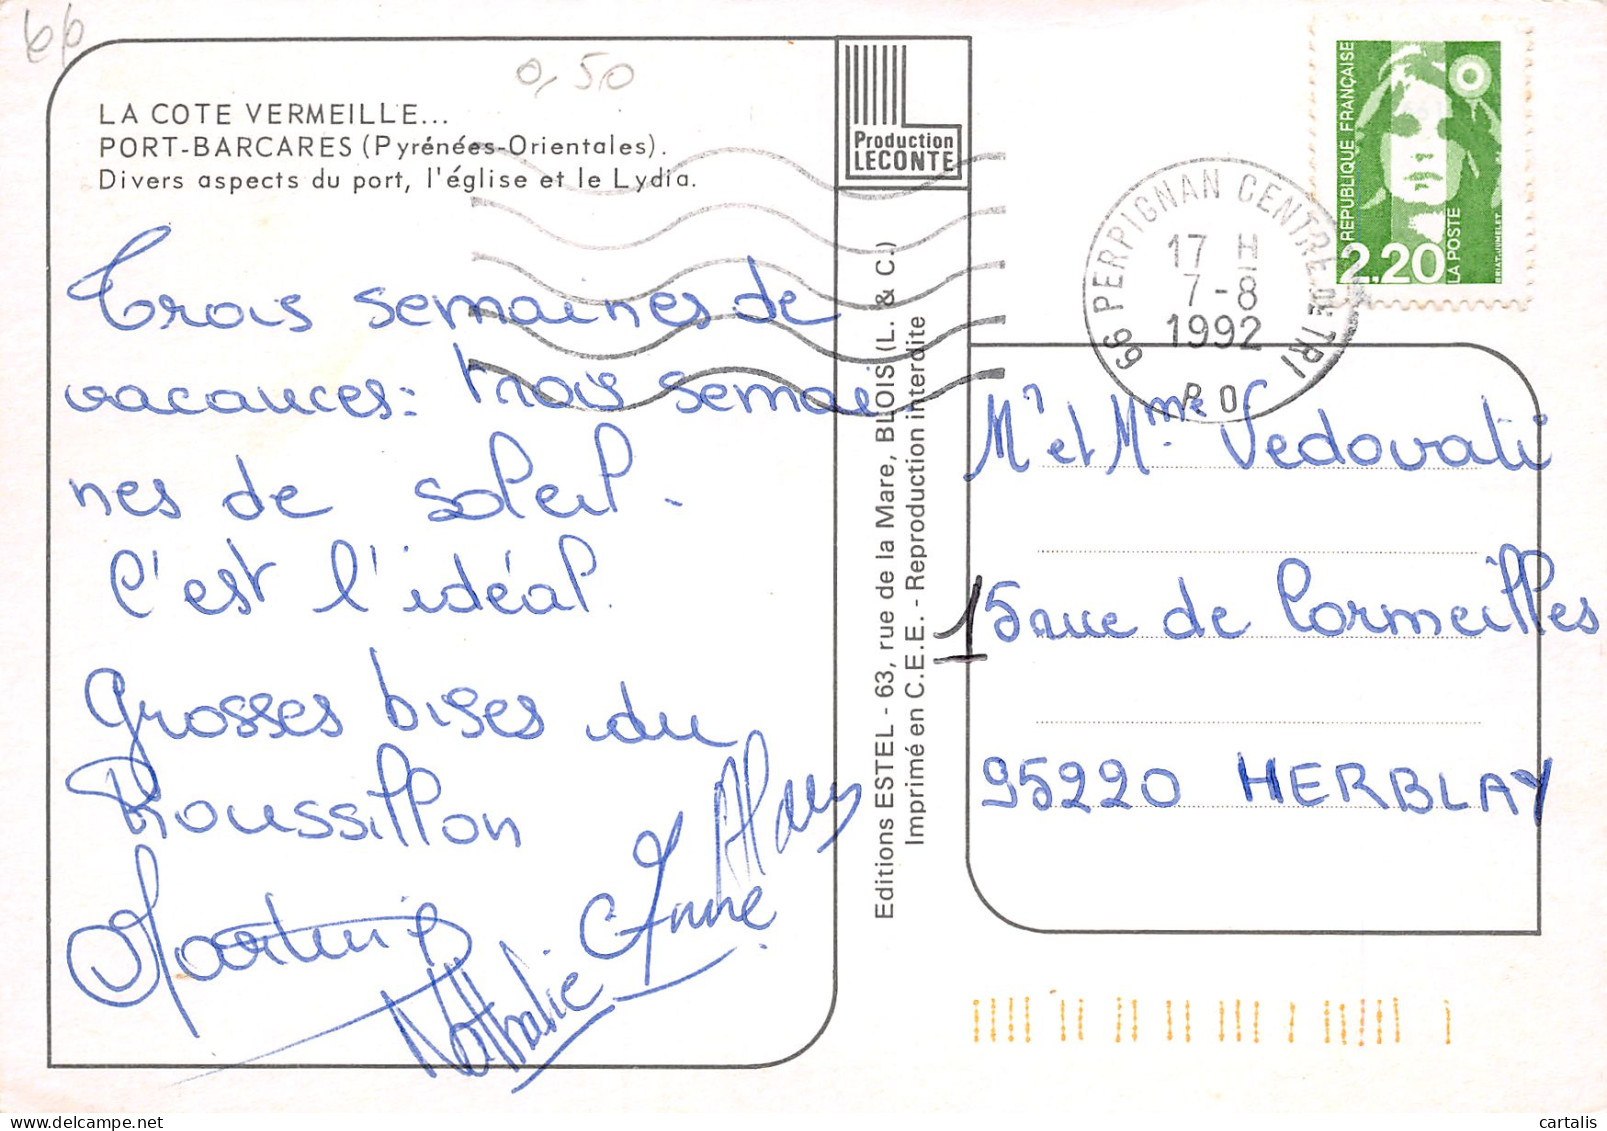 66
0,50
LA COTE VERMEILLE...
PORT-BARCARES (Pyrénées-Orientales).
Divers aspects du port, l'église et le Lydia.
Trois semaines de
vacances: trois semai
nes de soleil.
C'est l'idéal.
Grosses bises du
Roussillon
Martine
Nathalie
Anne
Alain
Production
LECONTE
Editions ESTEL - 63, rue de la Mare, BLOIS (L. & C.)
Imprimé en C.E.E. - Reproduction interdite
66 PERPIGNAN CENTRE DE TRI
17 H
7-8
1992
P.O
REPUBLIQUE FRANÇAISE
2,20
LA POSTE
BRIAT-JUMELET
Mr et Mme Vedovati
15 rue de Cormeilles
95220 HERBLAY
cartalis